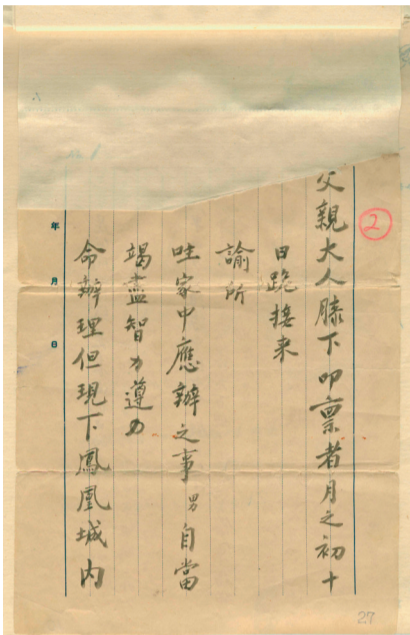 2
父親大人膝下叩稟者月之初十
日跪接来
諭所
吐家中應辦之事男自當
竭盡智力遵力
命辦理但現下鳳凰城内
年月日
27